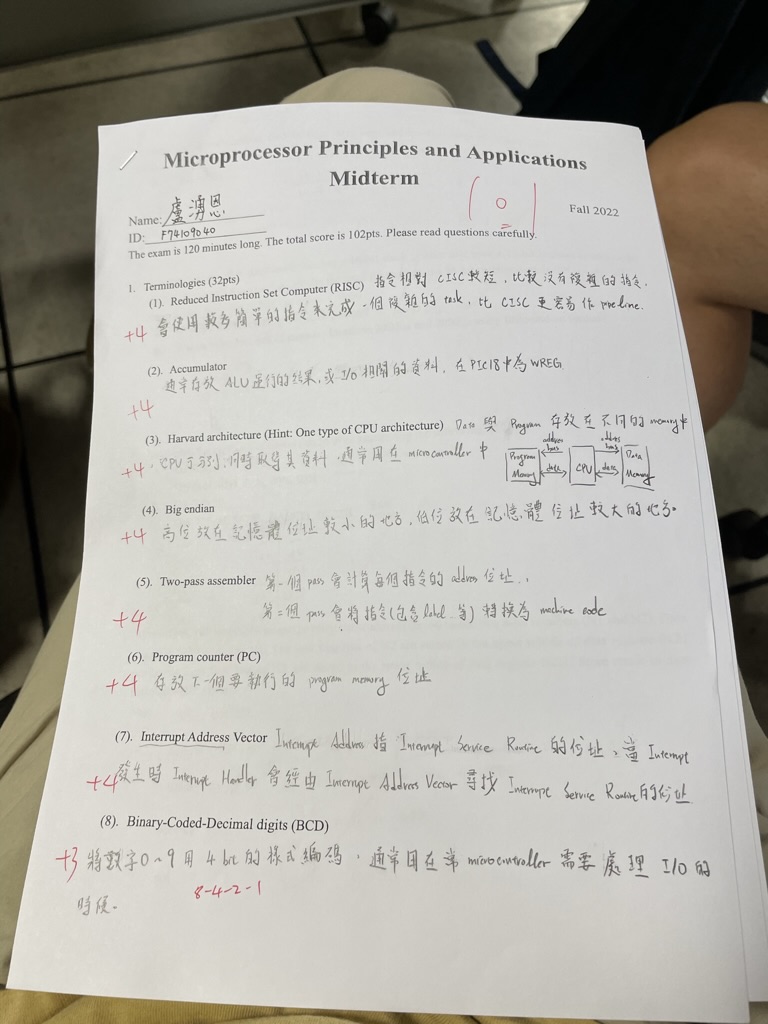 Microprocessor Principles and Applications
Midterm
101
Fall 2022
Name: 盧湧恩
ID: F74109040
The exam is 120 minutes long. The total score is 102pts. Please read questions carefully.
1. Terminologies (32pts)
(1). Reduced Instruction Set Computer (RISC) 指令相對 CISC 較短，比較沒有複雜的指令，
+4 會使用較多簡單的指令來完成一個複雜的 task，比 CISC 更容易作 pipeline.
(2). Accumulator
通常存放 ALU 運行的結果，或 I/O 相關的資料，在 PIC18 中為 WREG
+4
(3). Harvard architecture (Hint: One type of CPU architecture) Data 與 Program 存放在不同的 memory 中
+4 CPU 可分別、同時取得其資料，通常用在 microcontroller 中
address bus
address bus
Program Memory
CPU
Data Memory
data
data
(4). Big endian
+4 高位放在記憶體位址較小的地方，低位放在記憶體位址較大的地方。
(5). Two-pass assembler 第一個 pass 會計算每個指令的 address 位址，
+4 第二個 pass 會將指令(包含 label 等) 轉換為 machine code
(6). Program counter (PC)
+4 存放下一個要執行的 program memory 位址
(7). Interrupt Address Vector Interrupt Address 指 Interrupt Service Routine 的位址，當 Interrupt
+4 發生時 Interrupt Handler 會經由 Interrupt Address Vector 尋找 Interrupt Service Routine 的位址
(8). Binary-Coded-Decimal digits (BCD)
+3 將數字 0~9 用 4 bit 的樣式編碼，通常用在當 microcontroller 需要處理 I/O 的
時候。
8-4-2-1